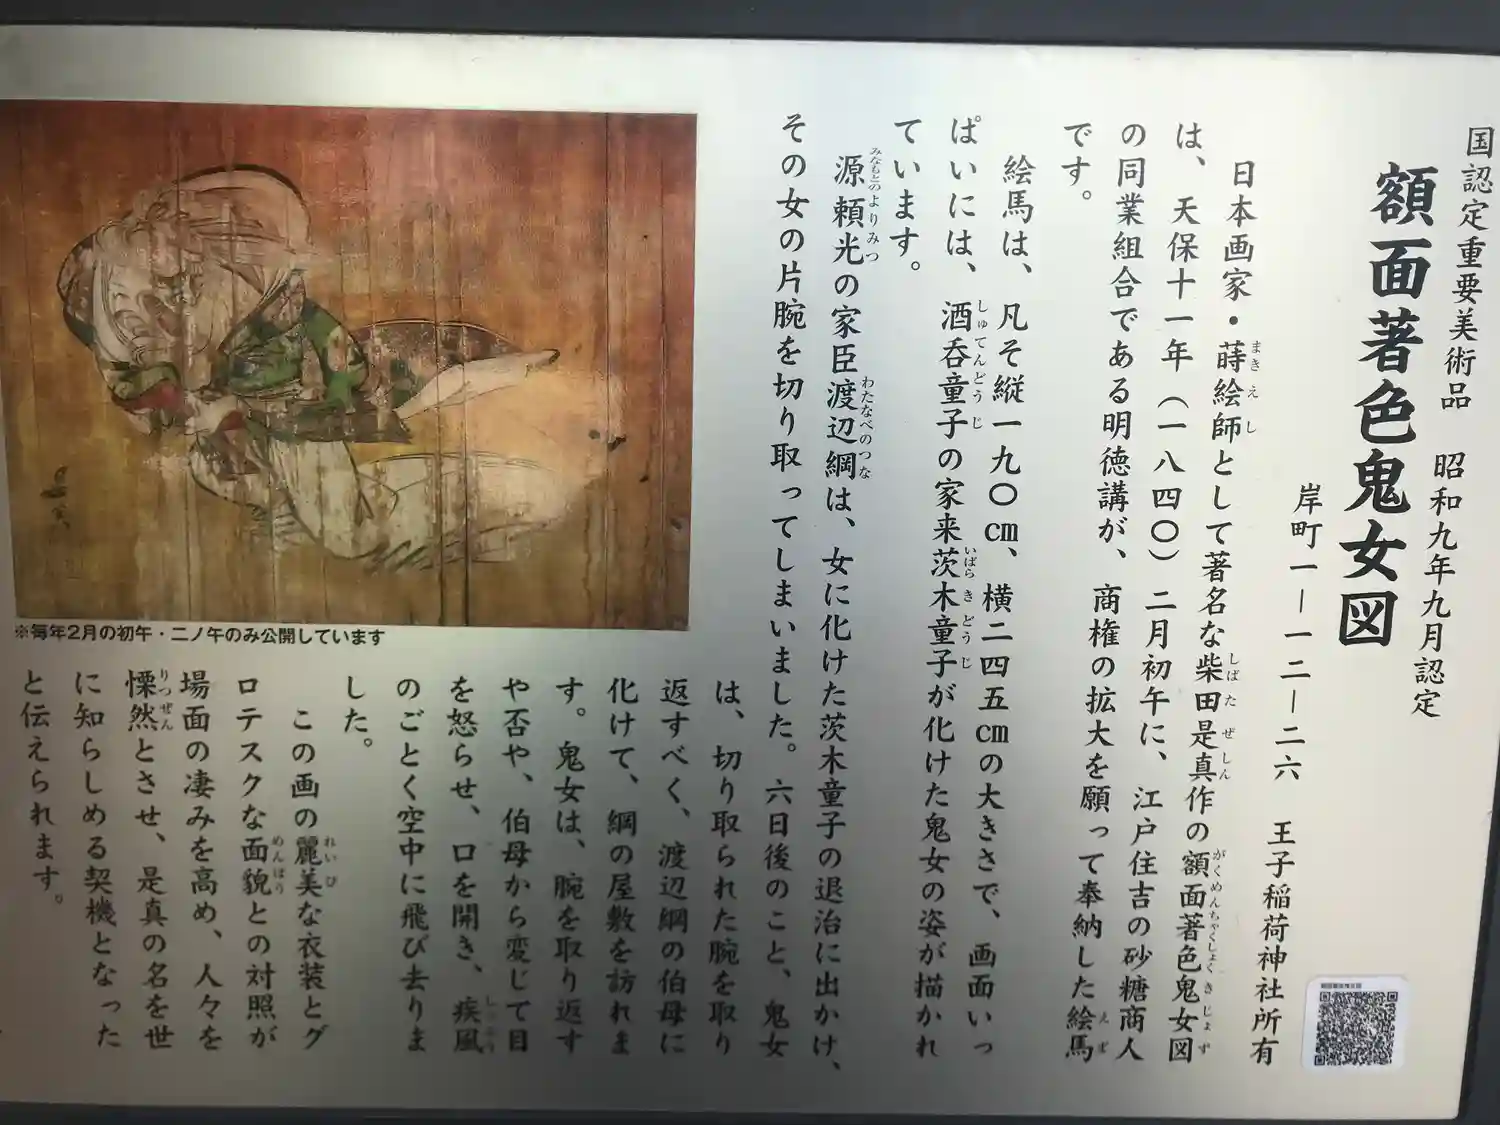 国認定重要美術品　昭和九年九月認定
額面著色鬼女図
岸町一－一二－二六　王子稲荷神社所有
日本画家・蒔絵師として著名な柴田是真作の額面著色鬼女図
は、天保十一年（一八四〇）二月初午に、江戸住吉の砂糖商人
の同業組合である明徳講が、商権の拡大を願って奉納した絵馬
です。
絵馬は、凡そ縦一九〇cm、横二四五cmの大きさで、画面いっ
ぱいには、酒呑童子の家来茨木童子が化けた鬼女の姿が描かれ
ています。
源頼光の家臣渡辺綱は、女に化けた茨木童子の退治に出かけ、
その女の片腕を切り取ってしまいました。六日後のこと、鬼女
は、切り取られた腕を取り
返すべく、渡辺綱の伯母に
化けて、綱の屋敷を訪れま
す。鬼女は、腕を取り返す
や否や、伯母から変じて目
を怒らせ、口を開き、疾風
のごとく空中に飛び去りま
した。
この画の麗美な衣装とグ
ロテスクな面貌との対照が
場面の凄みを高め、人々を
慄然とさせ、是真の名を世
に知らしめる契機となった
と伝えられます。
※毎年2月の初午・二ノ午のみ公開しています